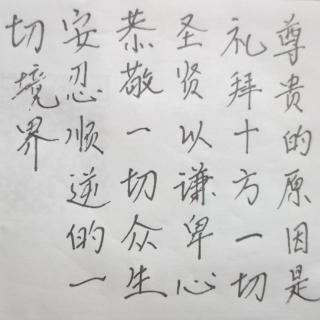 尊贵的原因是
礼拜十方一切
圣贤以谦卑心
恭敬一切众生
安忍顺逆的一
切境界